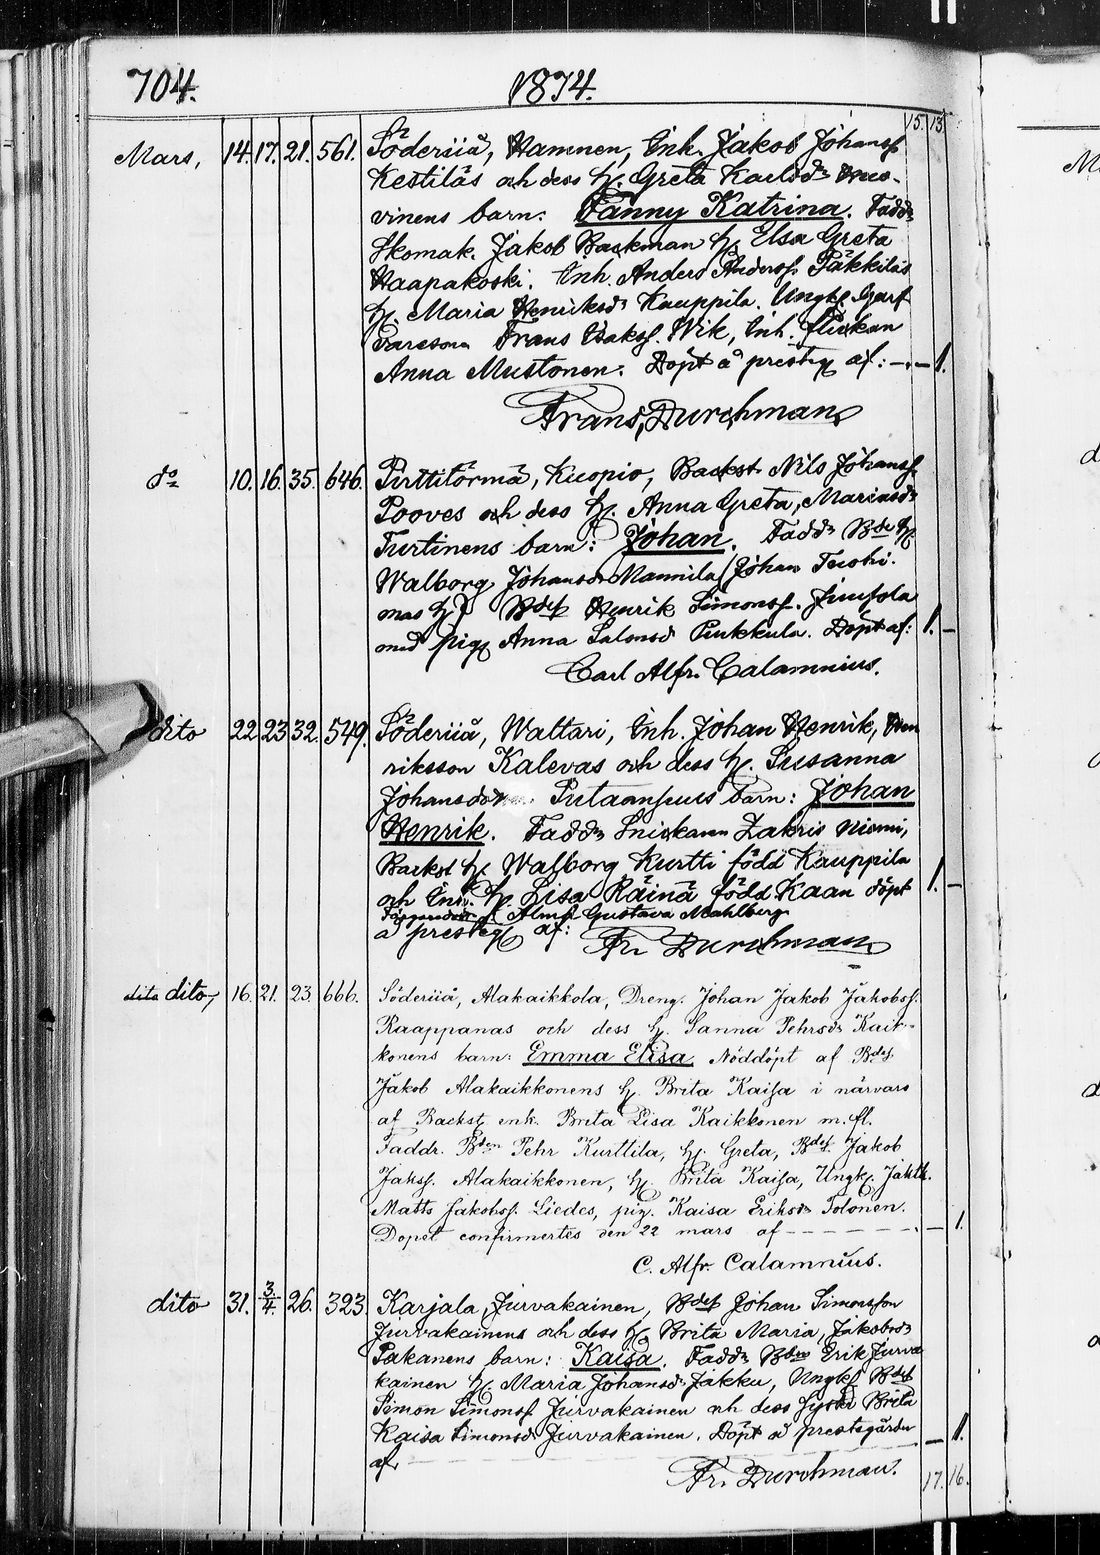 704. 1874.
15. 13.
Mars, 14. 17. 21. 561. Söderiiå, Hamnen, Inh. Jakob Johanss
Kestiläs och dess H. Greta Karlsdr Hus-
vinens barn: Fanny Katrina. Faddr
Skomak. Jakob Backman H. Elsa Greta
Haapakoski. Inh. Anders Anderss. Päkkiläs
H. Maria Henriksdr Kauppila. Ungk. Garf
vareson Frans Isakss. Wik, Inh. flickan
Anna Mustonen. Döpt å prestg af: — — 1.
Frans Durchman
do 10. 16. 35. 646. Pirttitörmä, Kuopio, Backst. Nils Johanss.
Pooves och dess H. Anna Greta, Mariasdr
Turtinens barn: Johan. Faddr Bde H.
Walborg Johansdr Mannila (Johan Tuohi-
mas H.) Bdes Henrik Simonss.
med pig. Anna Salomsd Pukkula. Döpt af: 1. —
Carl Alfr. Calamnius.
dito 22 23 32. 549. Söderiiå, Wattari, Inh. Johan Henrik, Hen
riksson Kalevas och dess H. Susanna
Johansdotter barn: Johan
Henrik. Faddr Snickaren Zakris Niemi,
Backst H. Walborg Kurtti född Kauppila
och Inh. H. Lisa Räinä född Kaan döpt 1. —
Gustava Mahlberg
å prestg af: Fr. Durchman
dito dito, 16. 21. 23. 666. Söderiiå, Alakaikkola, Dreng. Johan Jakob Jakobss.
Raappanas och dess H. Sanna Pehrsdr Kaik-
konens barn: Emma Elisa. Nöddöpt af Bdes.
Jakob Alakaikkonens H. Brita Kaisa i närvaro
af Backst. enk. Brita Lisa Kaikkonen m. fl.
Faddr. Bden Pehr Kurttila, H. Greta, Bdes. Jakob
Jakss. Alakaikkonen, H. Brita Kaisa, Ungk.
Matts Jakobss. Liedes, pig. Kaisa Eriksdr Tolonen.
Dopet confirmertes den 22 mars af — — — — 1.
C. Alfr. Calamnius.
dito 31. 3/4. 26. 323. Karjala, Jurvakainen, Bdes Johan Simonsson
Jurvakainens och dess H. Brita Maria, Jakobsdr
Pakanens barn: Kaisa. Faddr Bden Erik Jurva
kainen H. Maria Johansdr Jakku, Ungk. Bdes
Simon Simonss Jurvakainen och dess syster Brita
Kaisa Simonsdr Jurvakainen. Döpt å prestgården
af. — 1.
Fr. Durchman.
17. 16.